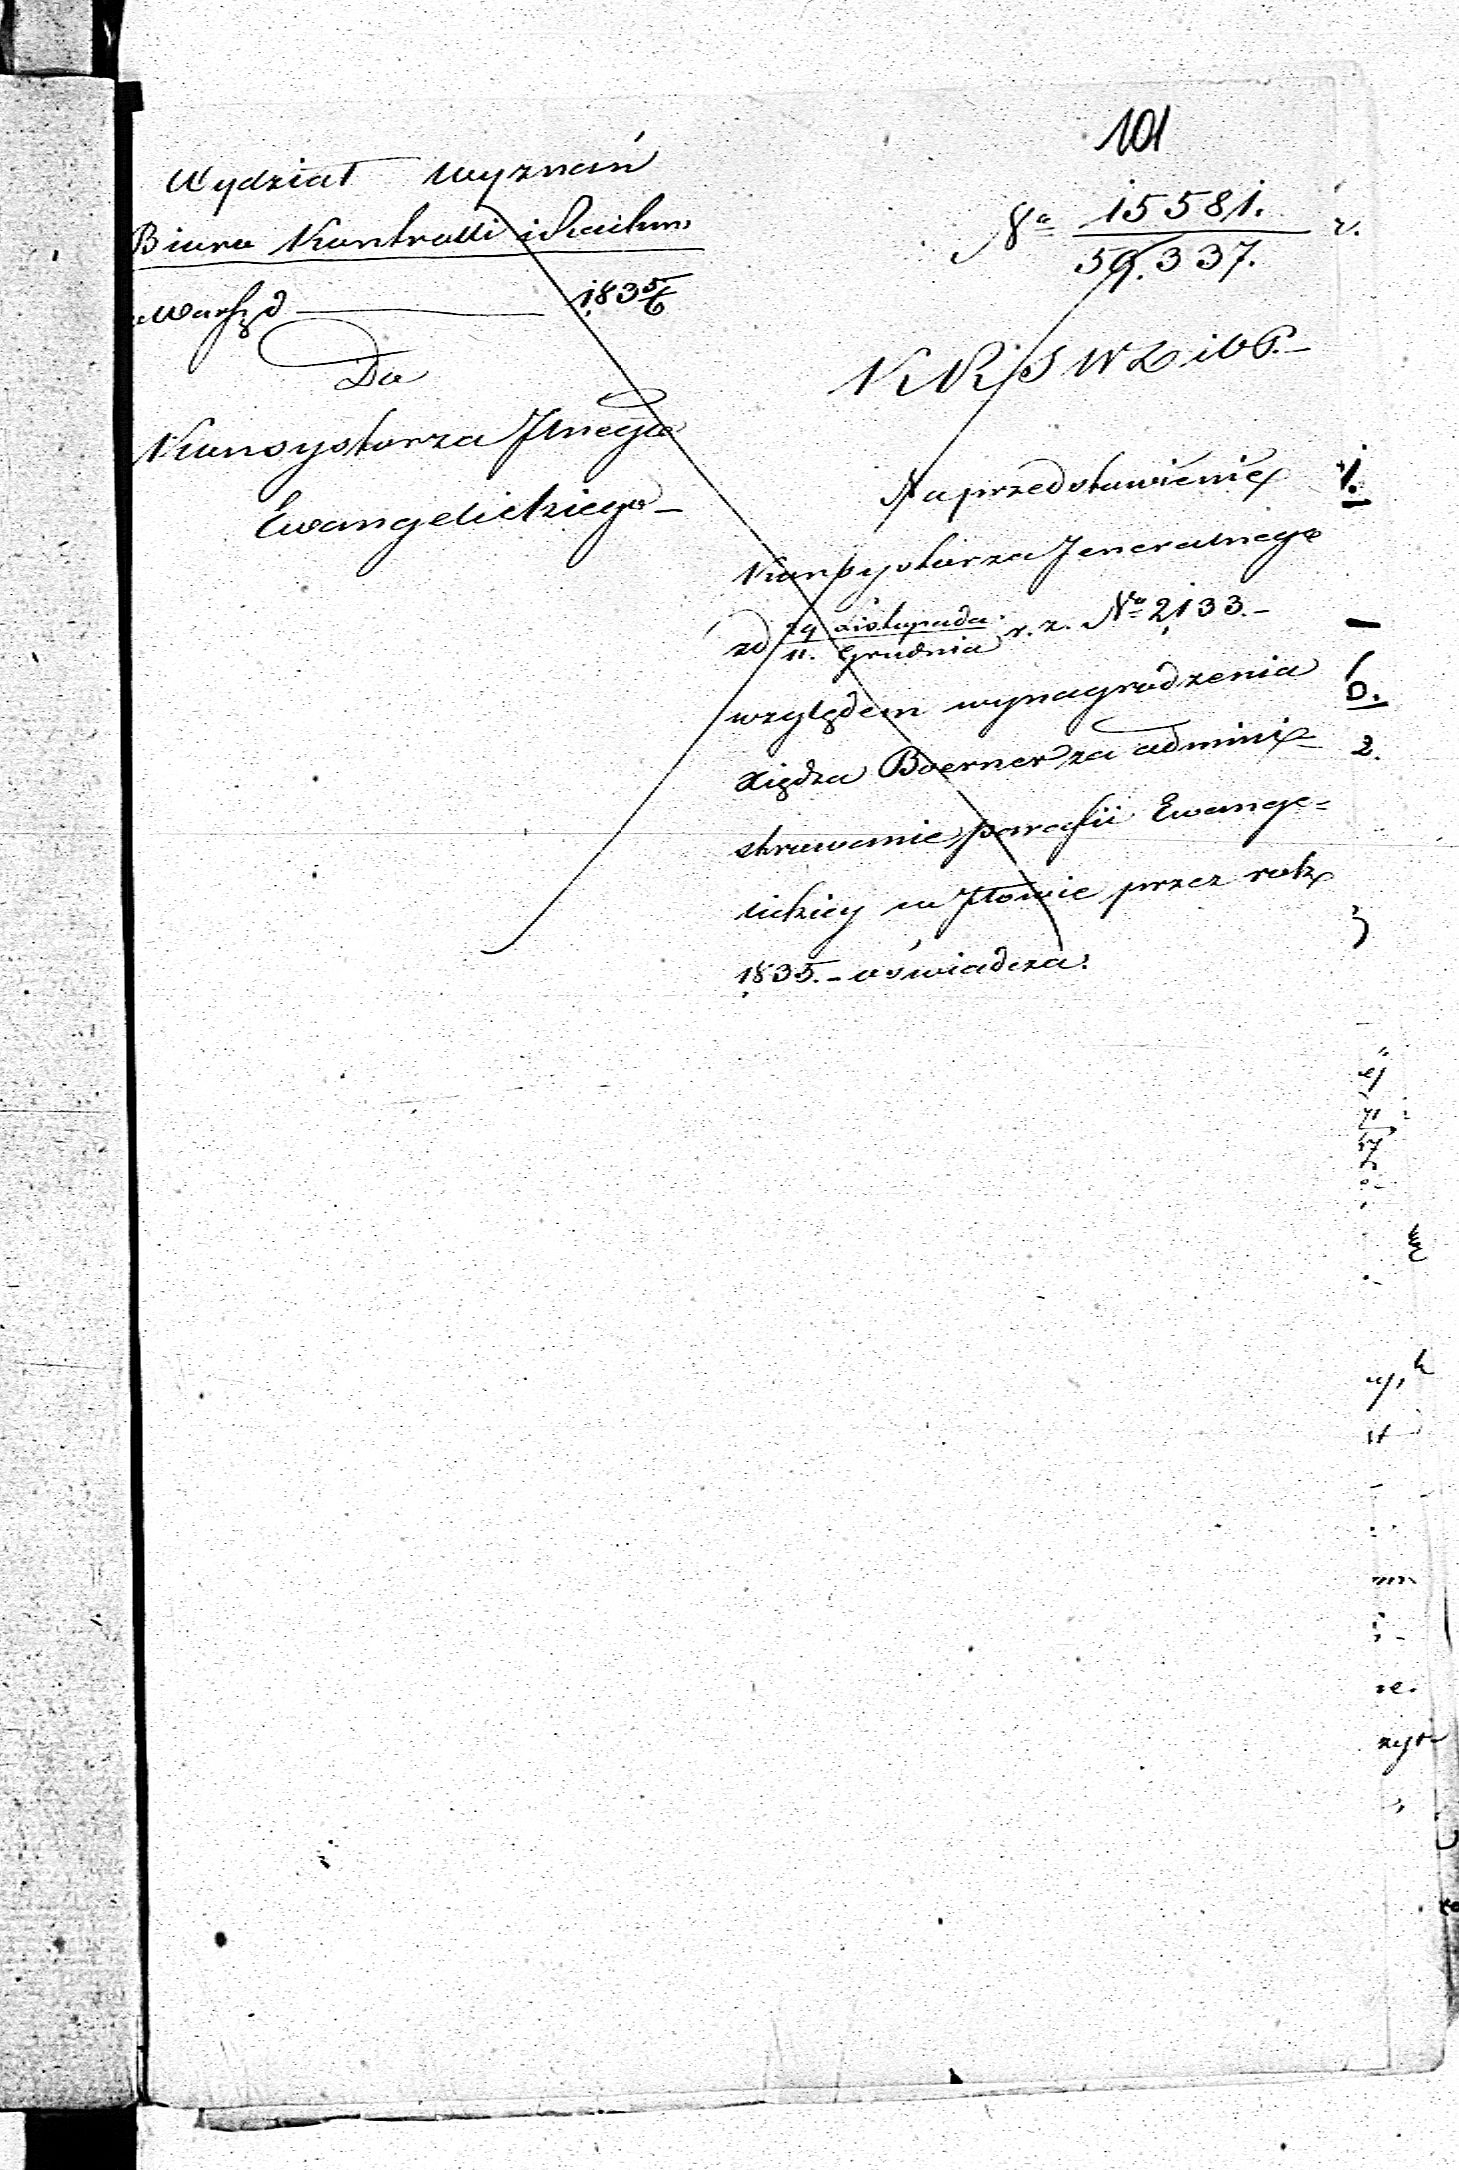 101
Wydział Wyznań
Biuro Kontrolli i Rachun:
Warsz d 1835/6
Do
Konsystorza Jlnego
Ewangelickiego
No 15581. / 59.337. r.
K R S W D i O P.
Na przedstawienie
Konsystorza Jeneralnego
zd 29 Listopada / 11. Grudnia r. z. No 2133.
względem wynagrodzenia
Xiędza Boerner za admini=
strowanie parafii Ewange=
lickiey w Jłowie przez rok
1835. oświadcza: